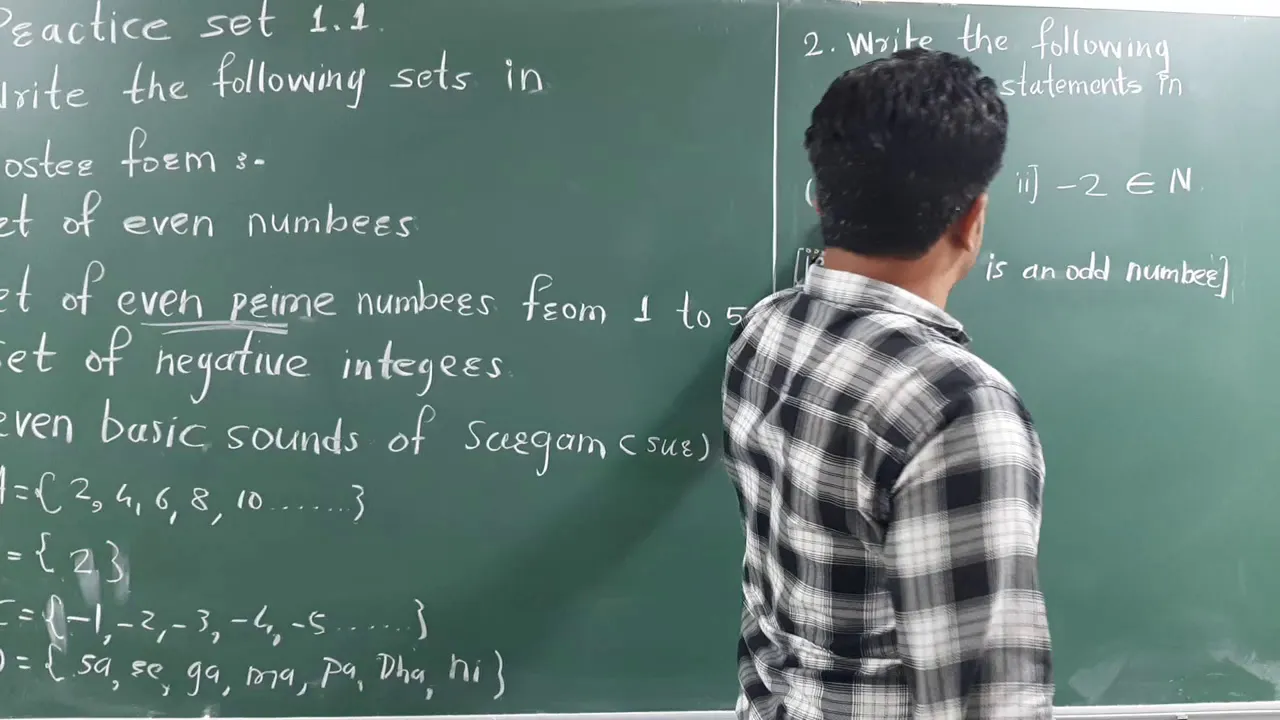 Practice set 1.1.
write the following sets in
roster form :-
set of even numbers
set of even prime numbers from 1 to 5
set of negative integers.
seven basic sounds of Sargam (sur)
A = { 2, 4, 6, 8, 10 ...... }
= { 2 }
C = { -1, -2, -3, -4, -5 ...... }
D = { sa, re, ga, ma, pa, Dha, ni }
2. Write the following
statements in
ii] -2 ∈ N.
is an odd number]